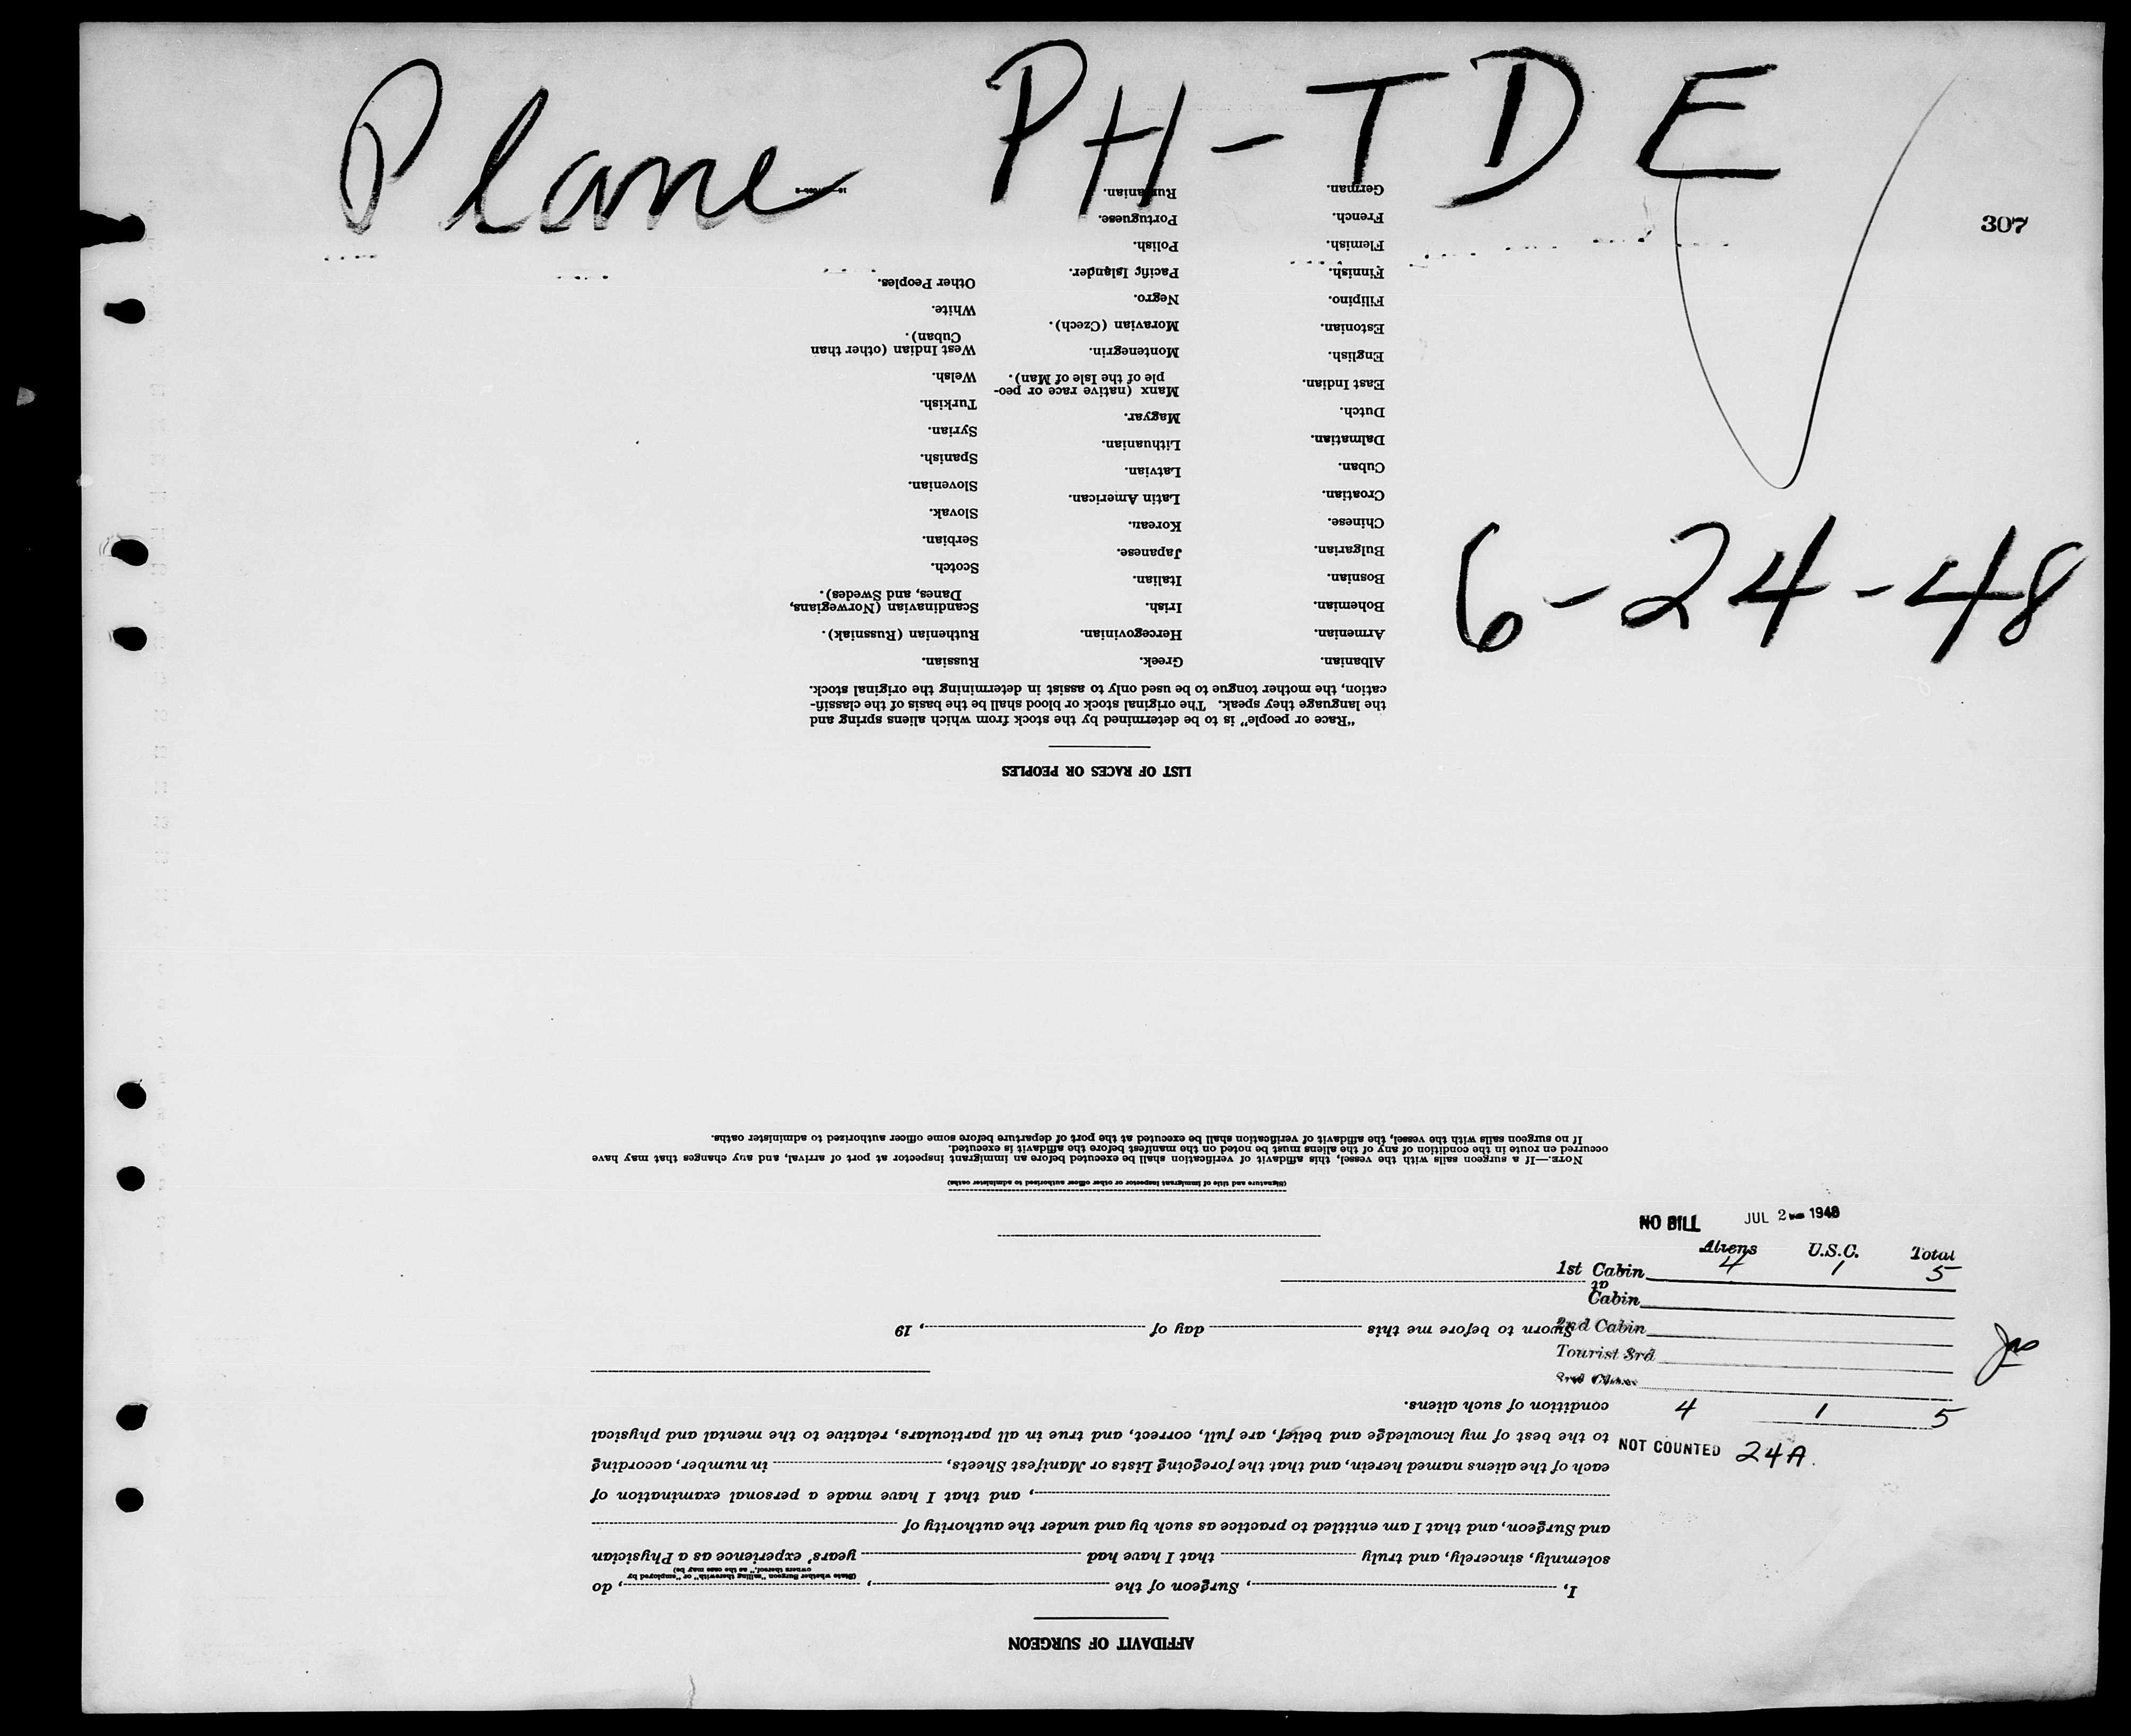 Plane PH-TDE
307
6-24-48
NO BILL JUL 2 1948
Aliens U.S.C. Total
1st Cabin 4 1 5
Cabin
2nd Cabin
Tourist 3rd
4 1 5
NOT COUNTED 24A.
AFFIDAVIT OF SURGEON
I, , Surgeon of the , , do
(State whether Surgeon "sailing therewith" or "employed by
owners thereof," as the case may be)
solemnly, sincerely, and truly that I have had years' experience as a Physician
and Surgeon, and that I am entitled to practice as such by and under the authority of
, and that I have made a personal examination of
each of the aliens named herein, and that the foregoing Lists or Manifest Sheets, in number, according
to the best of my knowledge and belief, are full, correct, and true in all particulars, relative to the mental and physical
condition of such aliens.
Sworn to before me this day of , 19
at
(Signature and title of immigrant inspector or other officer authorized to administer oaths)
NOTE.—If a surgeon sails with the vessel, this affidavit of verification shall be executed before an immigrant inspector at port of arrival, and any changes that may have
occurred en route in the condition of any of the aliens must be noted on the manifest before the affidavit is executed.
If no surgeon sails with the vessel, the affidavit of verification shall be executed at the port of departure before some officer authorized to administer oaths.
LIST OF RACES OR PEOPLES
"Race or people" is to be determined by the stock from which aliens spring and
the language they speak. The original stock or blood shall be the basis of the classifi-
cation, the mother tongue to be used only to assist in determining the original stock.
Albanian.
Armenian.
Bohemian.
Bosnian.
Bulgarian.
Chinese.
Croatian.
Cuban.
Dalmatian.
Dutch.
East Indian.
English.
Estonian.
Filipino.
Finnish.
Flemish.
French.
German.
Greek.
Hercegovinian.
Irish.
Italian.
Japanese.
Korean.
Latin American.
Latvian.
Lithuanian.
Magyar.
Manx (native race or peo-
ple of the Isle of Man).
Montenegrin.
Moravian (Czech).
Negro.
Pacific Islander.
Polish.
Portuguese.
Rumanian.
Russian.
Ruthenian (Russniak).
Scandinavian (Norwegians,
Danes, and Swedes).
Scotch.
Serbian.
Slovak.
Slovenian.
Spanish.
Syrian.
Turkish.
Welsh.
West Indian (other than
Cuban).
White.
Other Peoples.